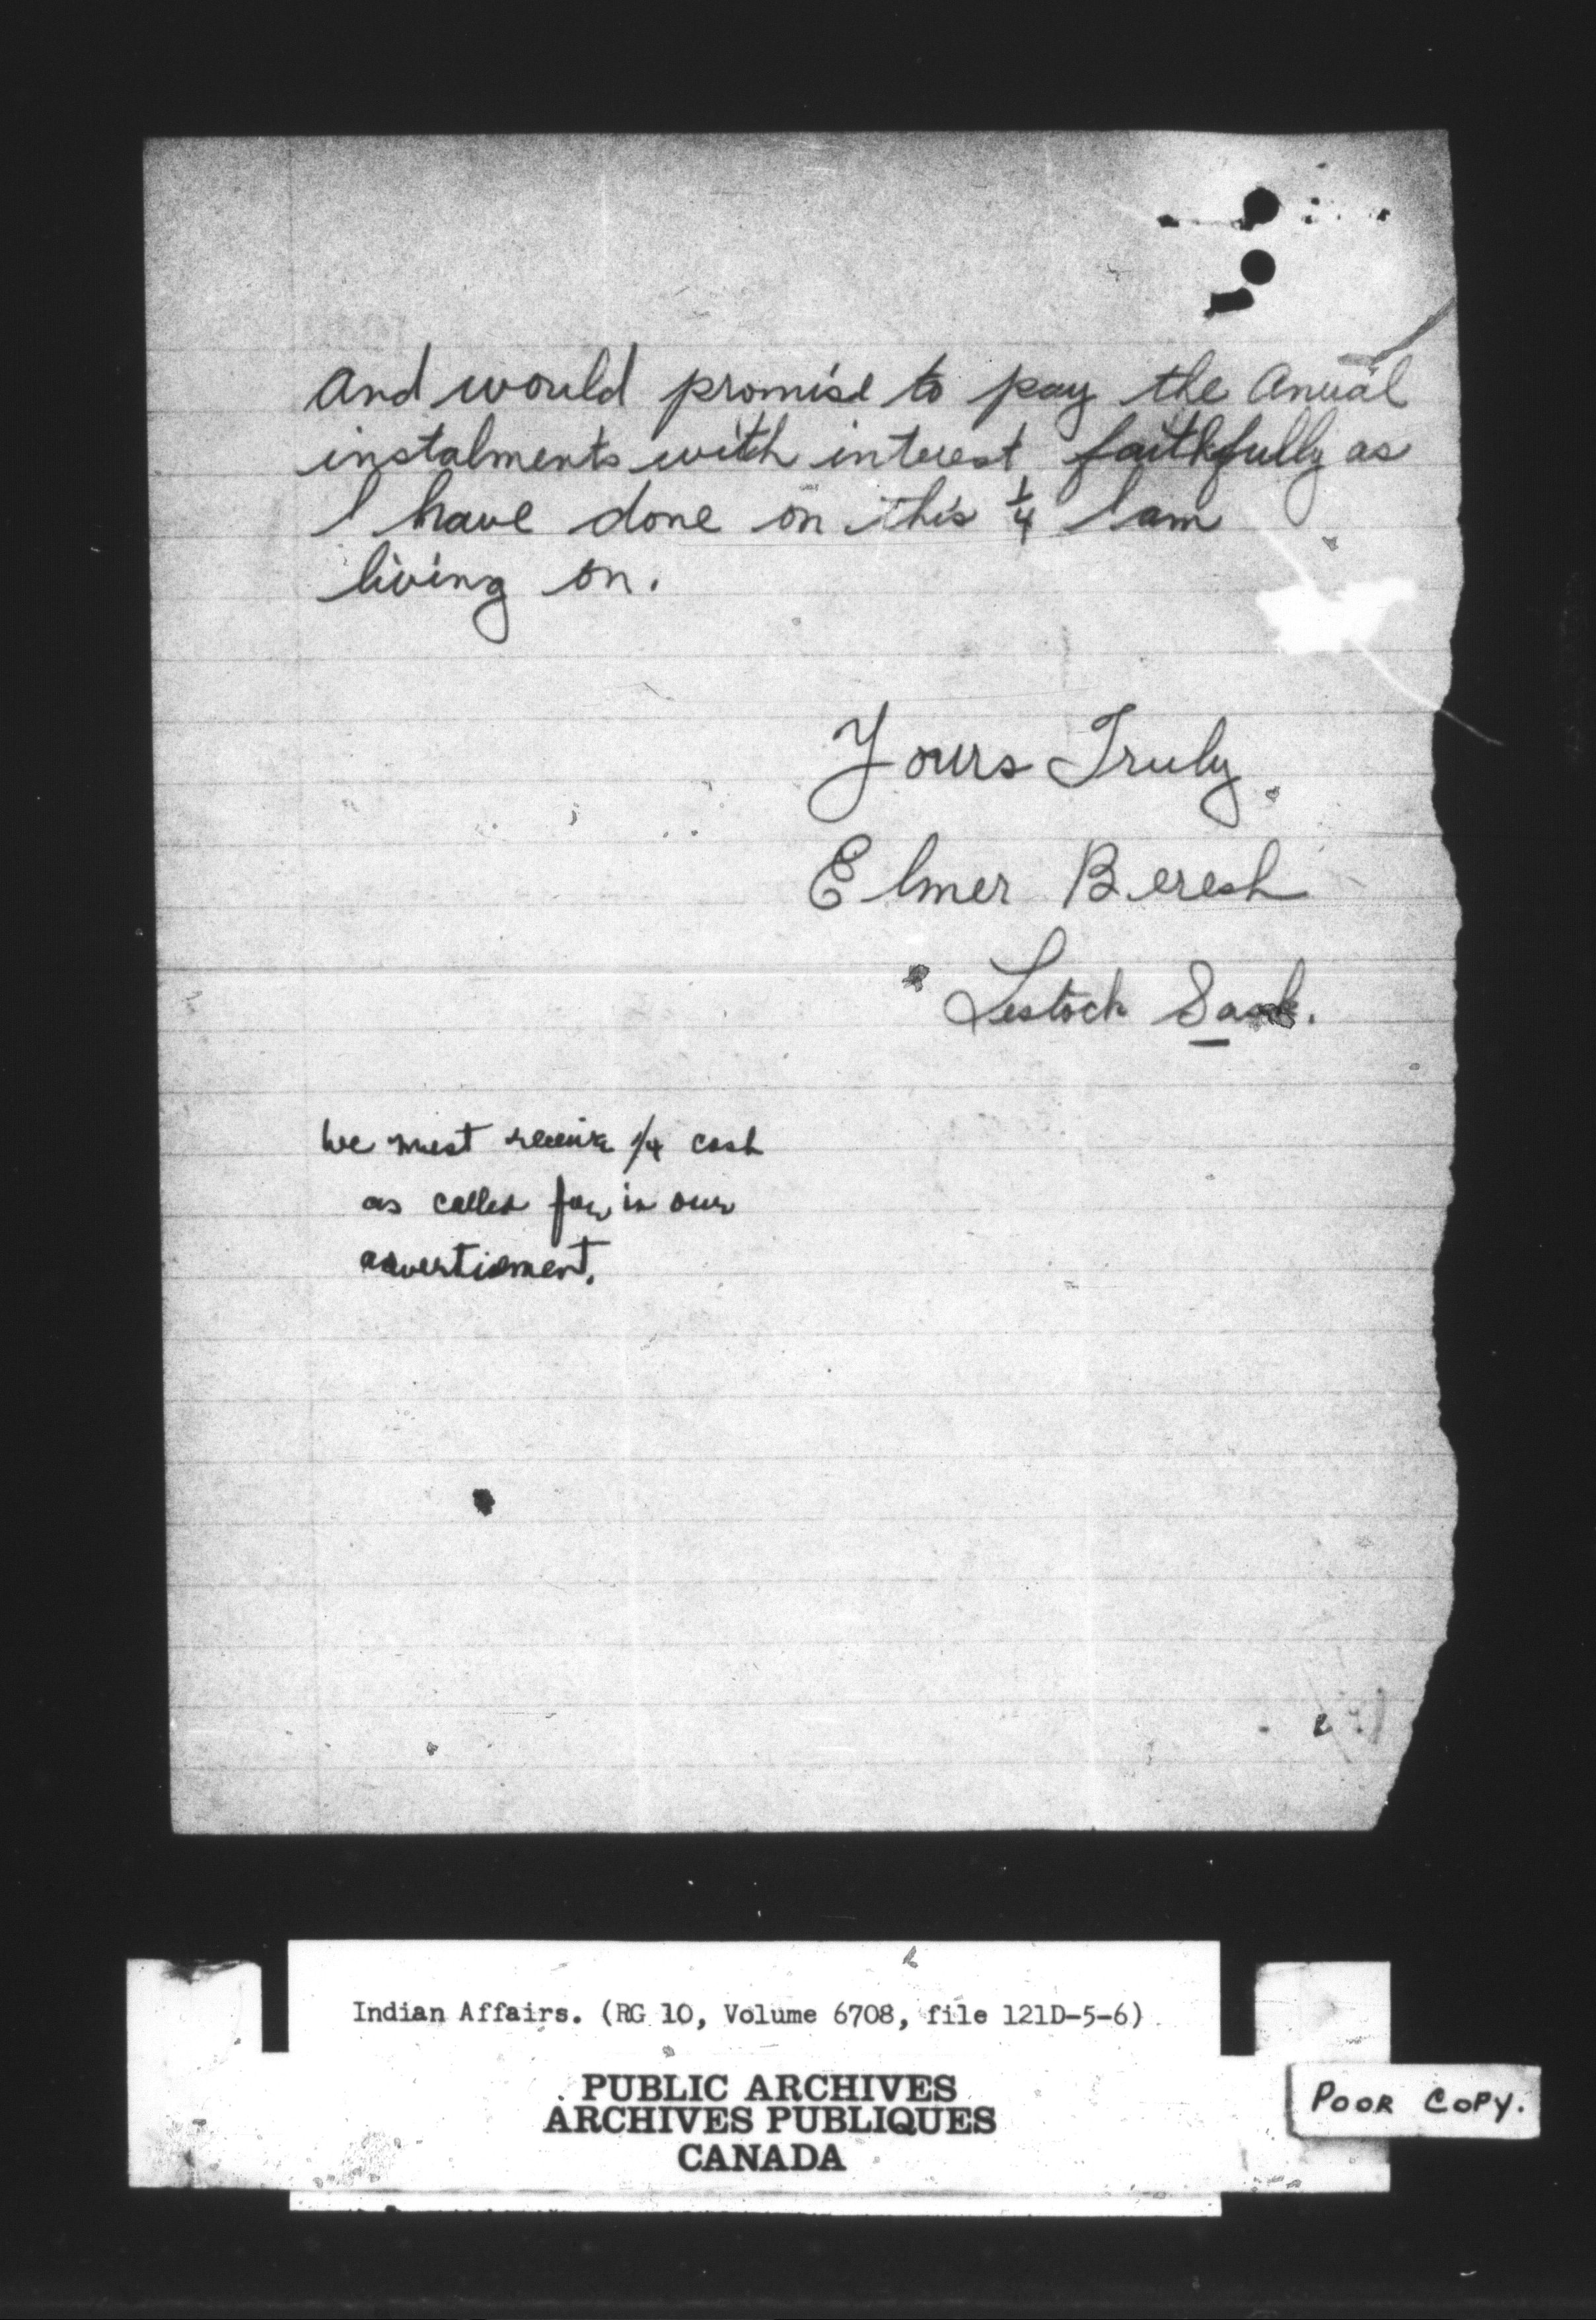 And would promise to pay the Anual
instalments with interest, faithfully as
I have done on this 1/4 I am
living on.
Yours Truly
Elmer Beresh
Lestock Sask.
We must receive 1/4 cash
as called for in our
advertisment.
Indian Affairs. (RG 10, Volume 6708, file 121D-5-6)
PUBLIC ARCHIVES
ARCHIVES PUBLIQUES
CANADA
POOR COPY.